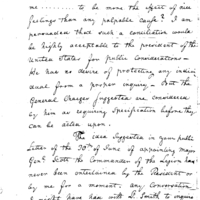 me ........ to be more the effect of nice
feelings than any palpable cause? I am
persuaded that such a conciliation would
be highly acceptable to the president of the
United States for public considerations —
He has no desire of protecting any indivi
dual from a proper inquiry — But the
General Charges suggested are considered
by him as requiring Specification before they
can be acted upon.
The idea Suggested in your public
Letter of the 30th of June of appointing major
Genl. Scott the Commander of the Legion has
never been entertained by the President or
by me for a moment, any Conversation
I might have had with Dr. Smith to inquire